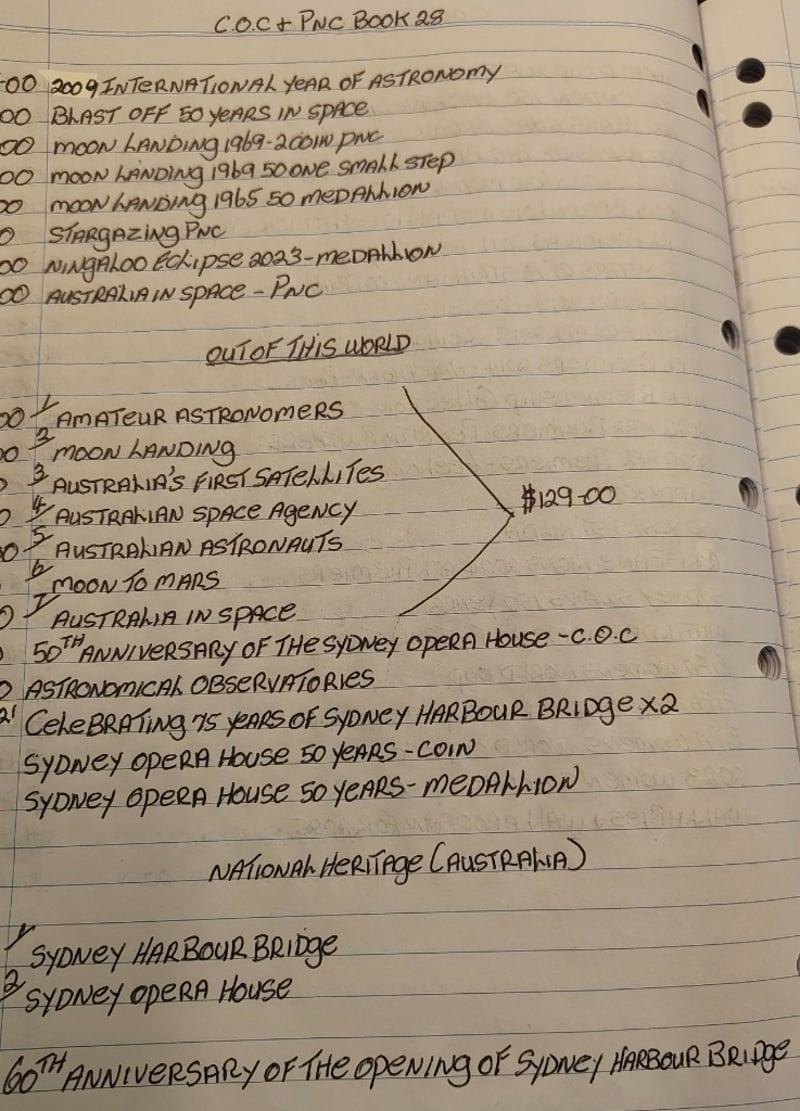 C.O.C + PNC BOOK 28
00 2009 INTERNATIONAL YEAR OF ASTRONOMY
00 BLAST OFF 50 YEARS IN SPACE
00 MOON LANDING 1969-2COIN PNC
00 MOON LANDING 1969 50 ONE SMALL STEP
00 MOON LANDING 1965 50 MEDALLION
0 STARGAZING PNC
00 NINGALOO ECLIPSE 2023-MEDALLION
00 AUSTRALIA IN SPACE - PNC
OUT OF THIS WORLD
00 1 AMATEUR ASTRONOMERS
00 2 MOON LANDING
3 AUSTRALIA'S FIRST SATELLITES
4 AUSTRALIAN SPACE AGENCY
$129-00
00 5 AUSTRALIAN ASTRONAUTS
6 MOON TO MARS
0 7 AUSTRALIA IN SPACE
50TH ANNIVERSARY OF THE SYDNEY OPERA HOUSE - C.O.C
ASTRONOMICAL OBSERVATORIES
CELEBRATING 75 YEARS OF SYDNEY HARBOUR BRIDGE X2
SYDNEY OPERA HOUSE 50 YEARS - COIN
SYDNEY OPERA HOUSE 50 YEARS - MEDALLION
NATIONAL HERITAGE (AUSTRALIA)
1 SYDNEY HARBOUR BRIDGE
2 SYDNEY OPERA HOUSE
60TH ANNIVERSARY OF THE OPENING OF SYDNEY HARBOUR BRIDGE